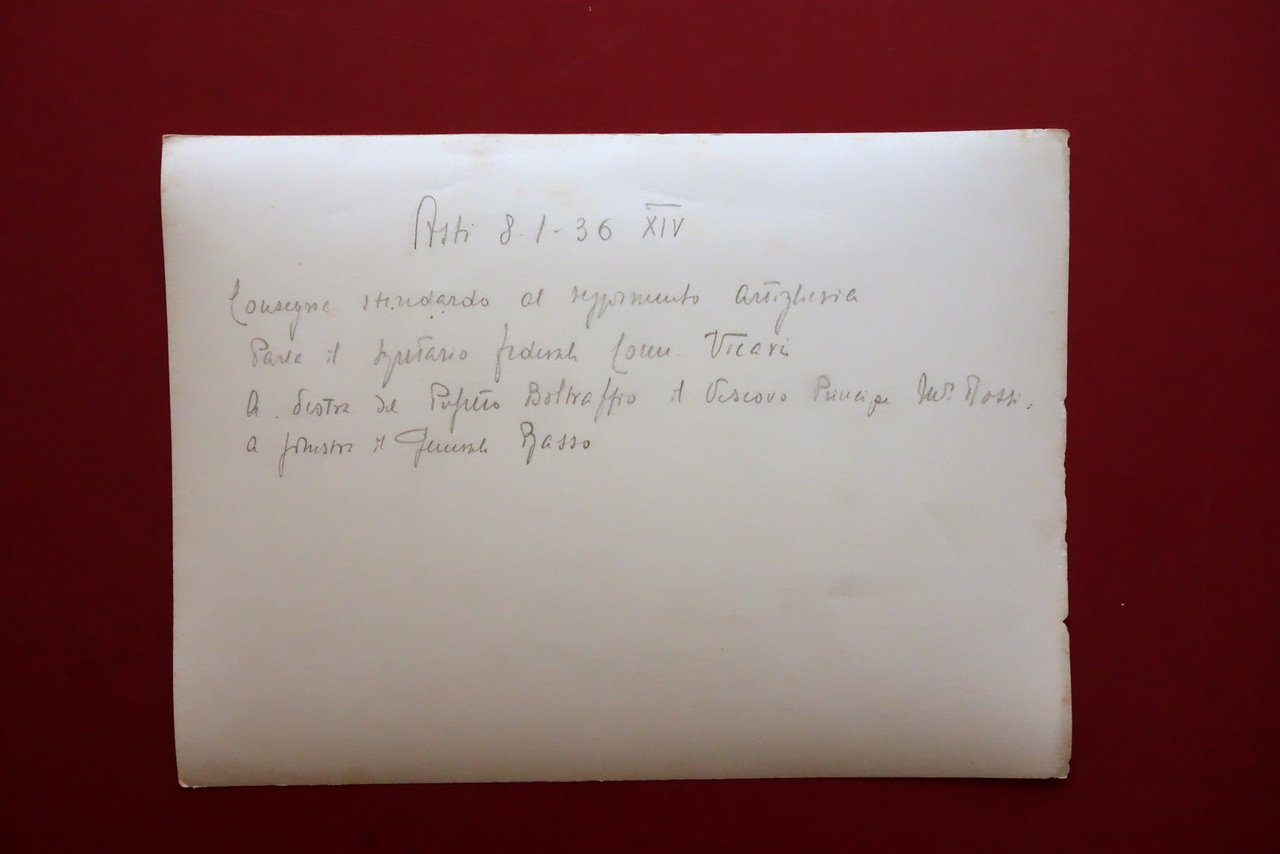 Asti 8.1-36 XIV
Consegna stendardo al reggimento artiglieria
Parla il segretario federale Comm. Vicari
A destra del Prefetto Boltraffio il Vescovo Principe Mr. Rossi,
a sinistra il Generale Basso